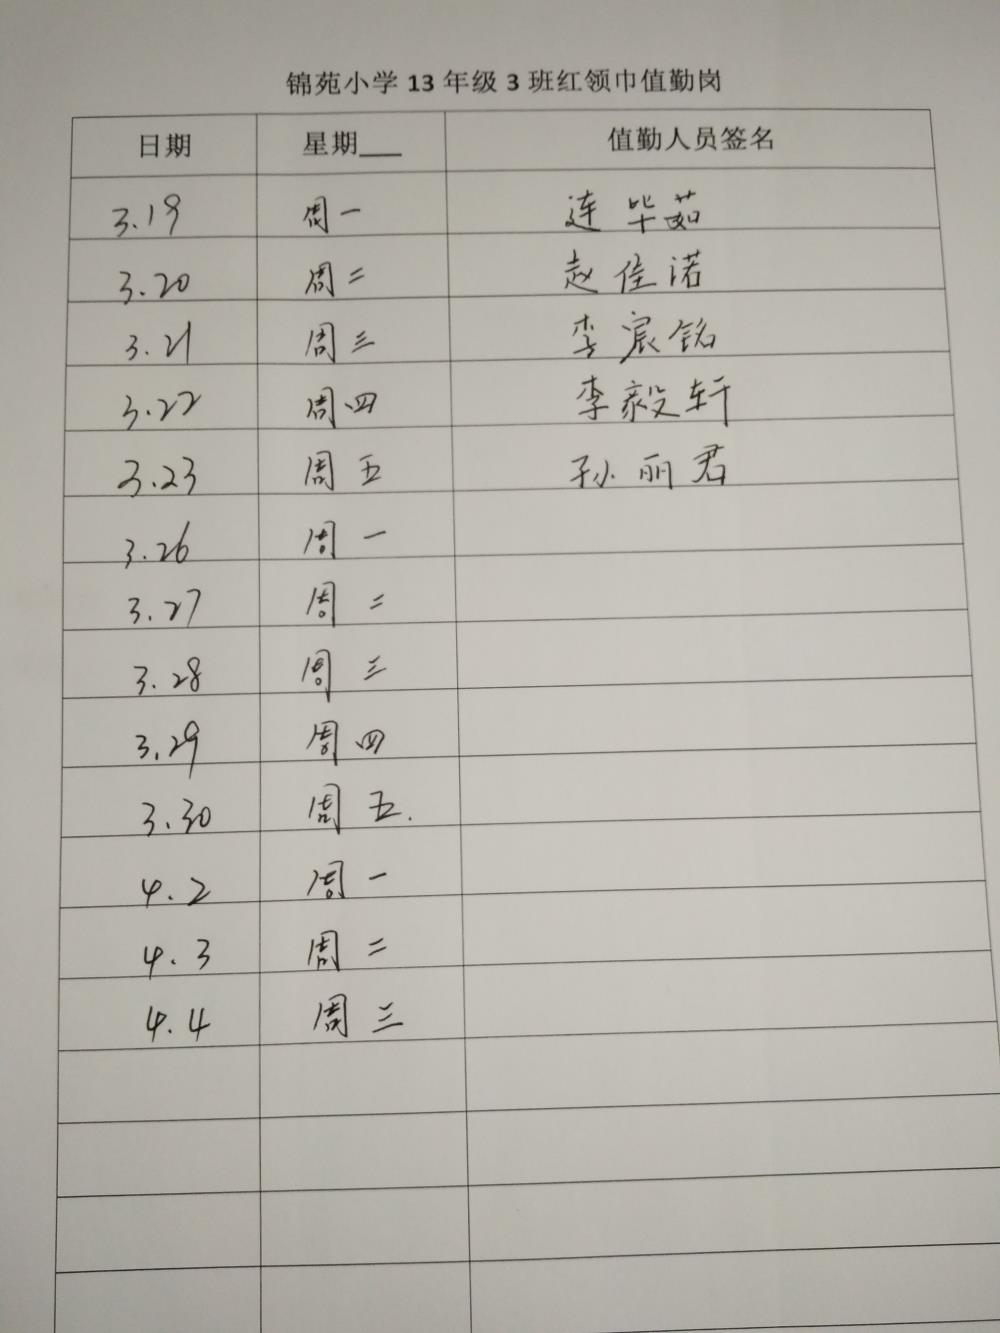 锦苑小学 13 年级 3 班红领巾值勤岗
日期 星期___ 值勤人员签名
3.19 周一 连毕茹
3.20 周二 赵佳诺
3.21 周三 李宸铭
3.22 周四 李毅轩
3.23 周五 孙丽君
3.26 周一
3.27 周二
3.28 周三
3.29 周四
3.30 周五.
4.2 周一
4.3 周二
4.4 周三